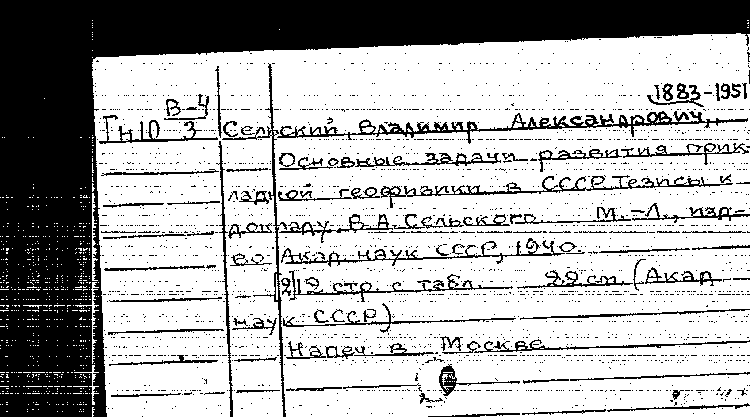 1883-1951
В-4
Гн10 3 Сельский, Владимир Александрович,
Основные задачи развития прик-
ладной геофизики в СССР. Тезисы к
докладу В.А. Сельского. М.-Л., изд-
во Акад. наук СССР, 1940.
[2]12 стр. с табл. 22 см. (Акад
наук СССР)
Напеч. в Москве